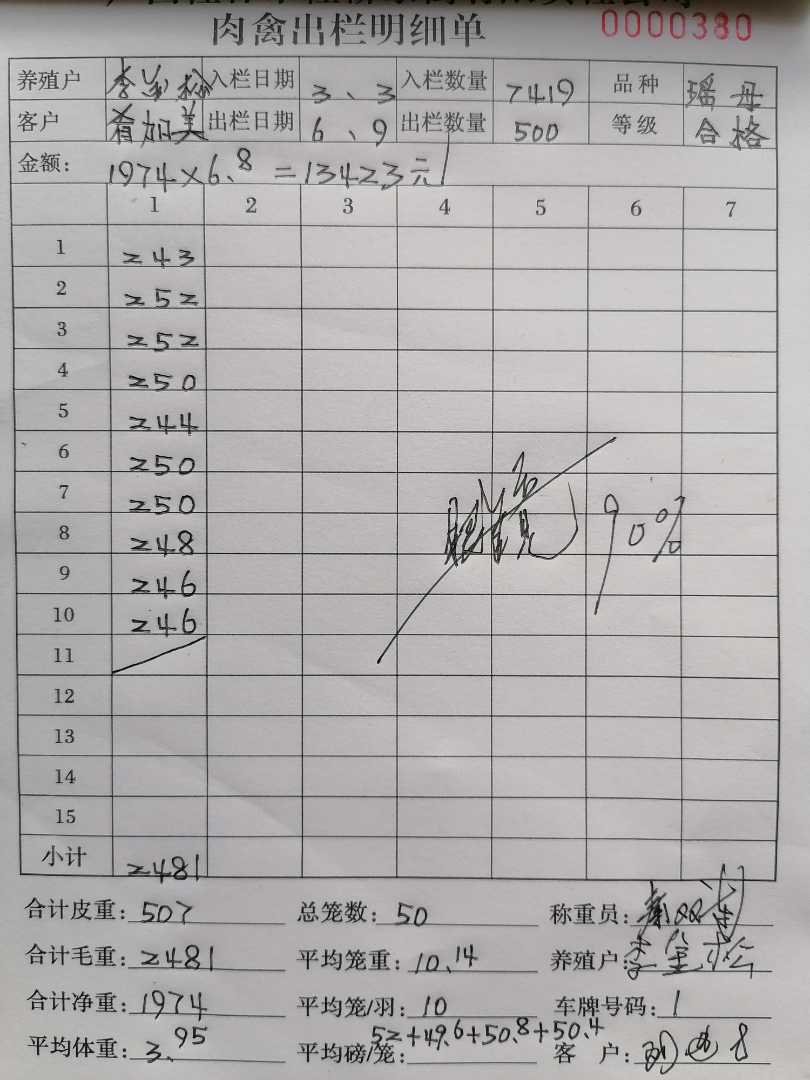 肉禽出栏明细单 0000380
养殖户 李 入栏日期 3、3 入栏数量 7419 品种 瑶母
客户 肴加美 出栏日期 6、9 出栏数量 500 等级 合格
金额: 1974×6.8=13423元
1 2 3 4 5 6 7
1 243
2 252
3 252
4 250
5 244
6 250
7 250
8 248 90%
9 246
10 246
11
12
13
14
15
小计 2481
合计皮重: 507 总笼数: 50 称重员:
合计毛重: 2481 平均笼重: 10.14 养殖户: 李
合计净重: 1974 平均笼/羽: 10 车牌号码: /
平均体重: 3.95 平均磅/笼: 52+49.6+50.8+50.4 客 户: